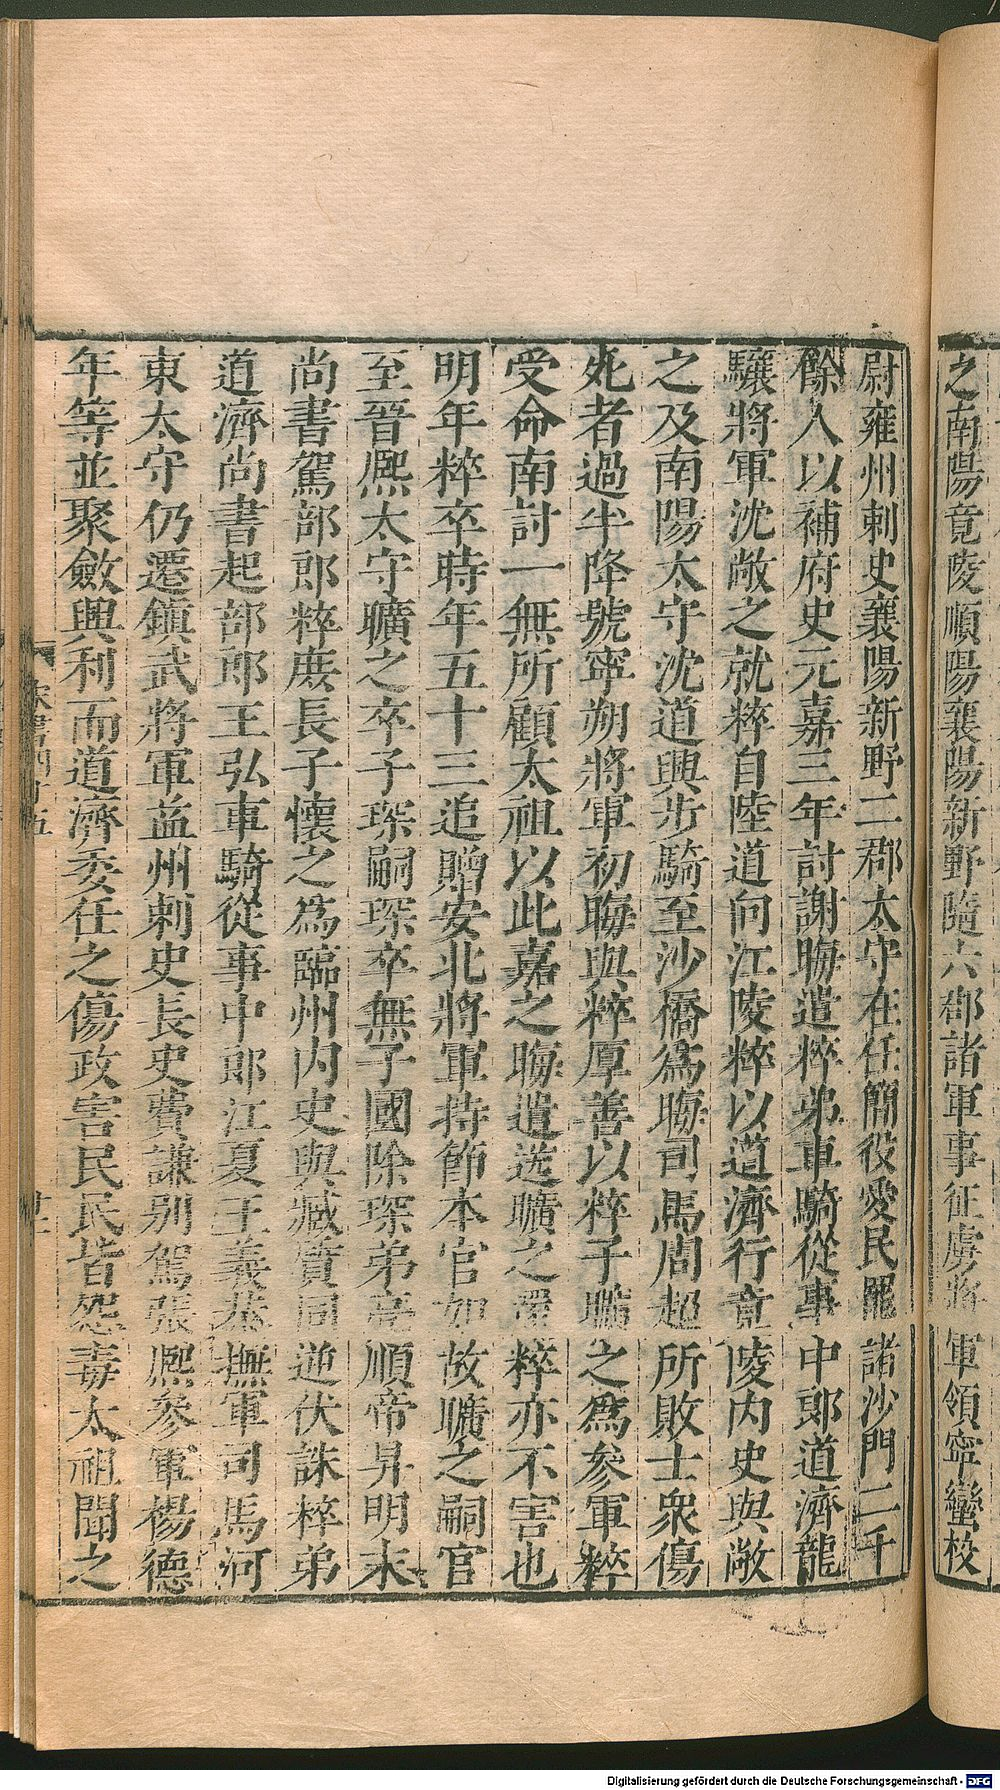 之南陽竟陵順陽襄陽新野隨六郡諸軍事征虜將軍領寧蠻校
尉雍州刺史襄陽新野二郡太守在任簡役愛民罷諸沙門二千
餘人以補府史元嘉三年討謝晦遣粹弟車騎從事中郎道濟龍
驤將軍沈敞之就粹自陸道向江陵粹以道濟行竟陵內史與敞
之及南陽太守沈道興步騎至沙橋為晦司馬周超所敗士衆傷
死者過半降號寧朔將軍初晦與粹厚善以粹子曠之為參軍粹
受命南討一無所顧太祖以此嘉之晦遣送曠之還粹亦不害也
明年粹卒時年五十三追贈安北將軍持節本官如故曠之嗣官
至晉熙太守曠之卒子琛嗣琛卒無子國除琛弟亮順帝昇明末
尚書駕部郎粹庶長子懷之為臨州內史與臧質同逆伏誅粹弟
道濟尚書起部郎王弘車騎從事中郎江夏王義恭撫軍司馬河
東太守仍遷鎮武將軍益州刺史長史費謙別駕張熙參軍楊德
年等並聚斂興利而道濟委任之傷政害民民皆怨毒太祖聞之
Digitalisierung gefördert durch die Deutsche Forschungsgemeinschaft - DFG